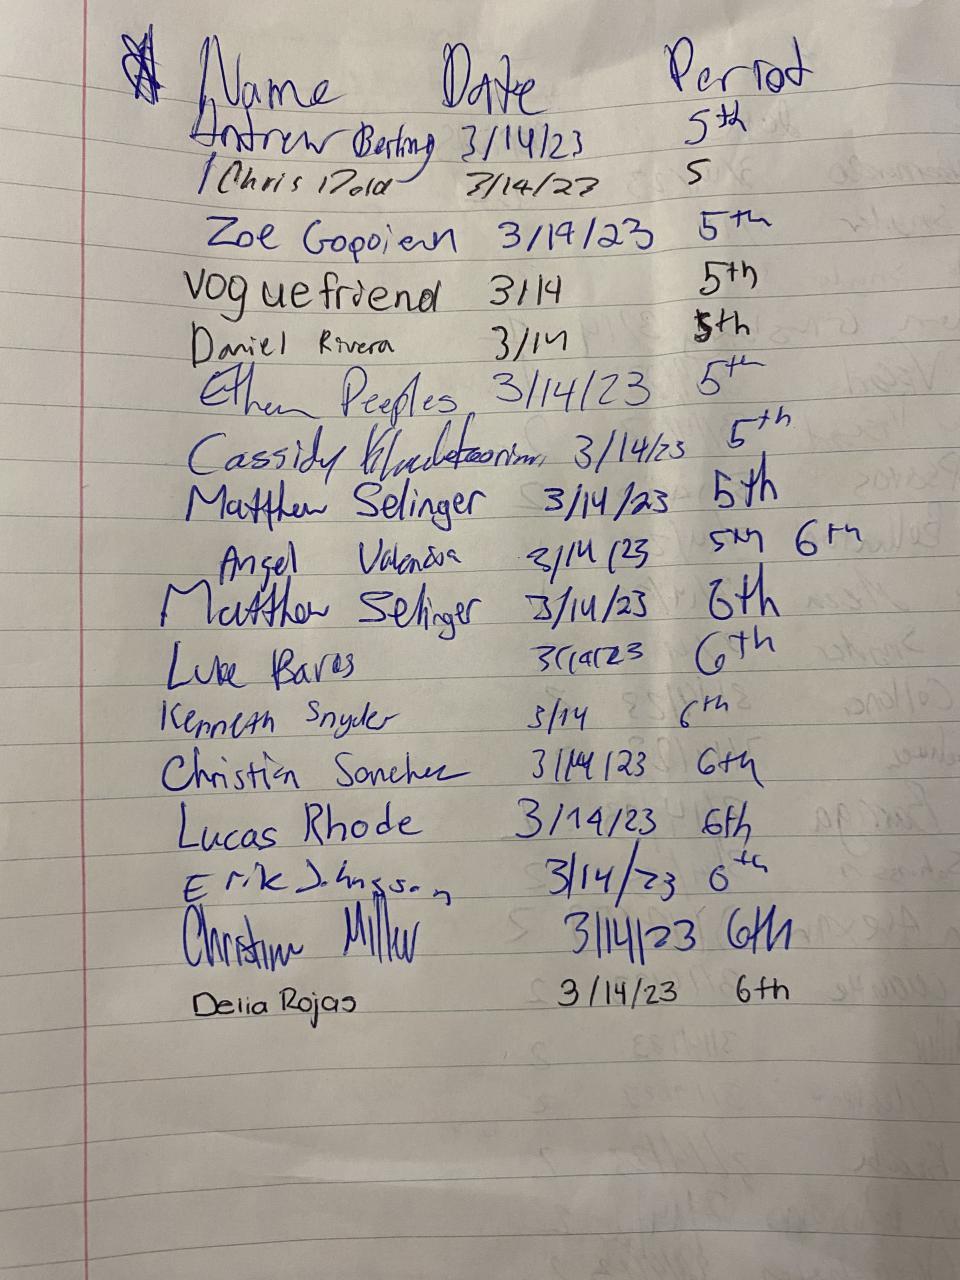 Name Date Period
Andrew Berling 3/14/23 5th
Chris Dold 3/14/23 5
Zoe Gopoian 3/14/23 5th
voguefriend 3/14 5th
Daniel Rivera 3/14 5th
Ethan Peeples 3/14/23 5th
Cassidy 3/14/23 5th
Matthew Selinger 3/14/23 5th
Angel Valencia 3/14/23 5th 6th
Matthew Selinger 3/14/23 6th
Luke Bares 3/14/23 6th
Kenneth Snyder 3/14 6th
Christian Sanchez 3/14/23 6th
Lucas Rhode 3/14/23 6th
Erik Johnsson 3/14/23 6th
Christian Miller 3/14/23 6th
Delia Rojas 3/14/23 6th